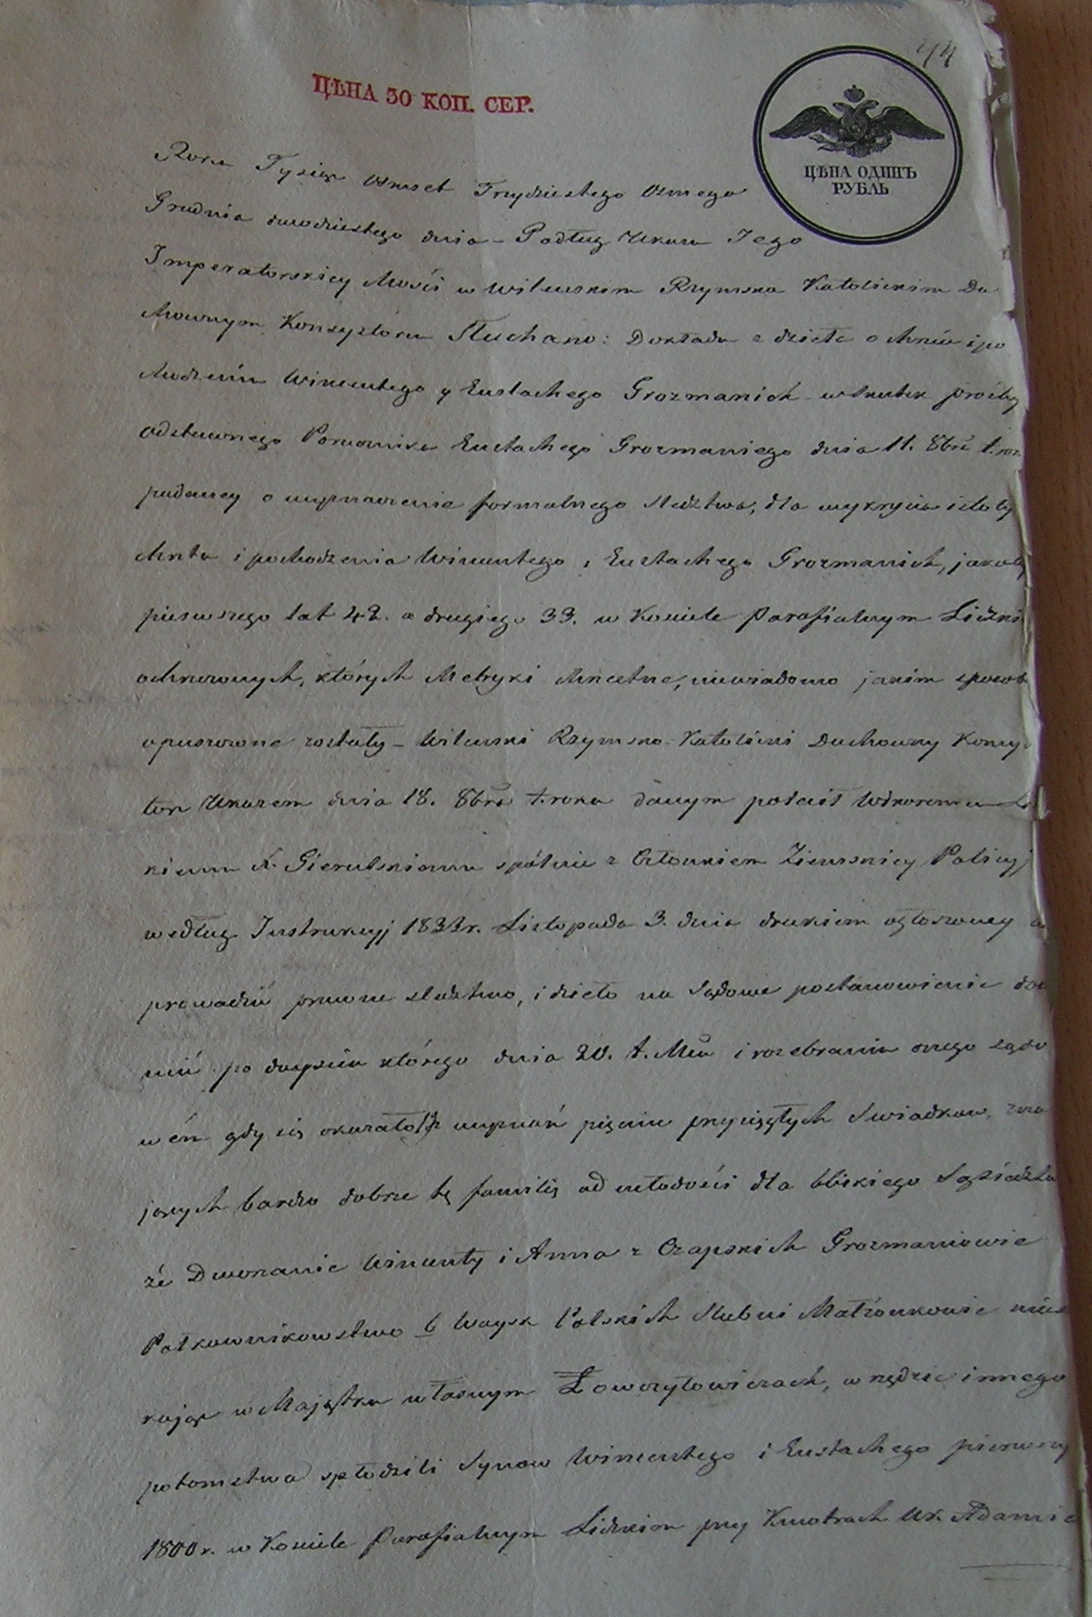 44
ЦѢНА 30 КОП. СЕР.
ЦѢНА ОДИНЪ
РУБЛЬ
Roku Tysiąc osmset Trzydziestego Osmego
Grudnia dwudziestego dnia – Podług Ukazu Jego
Imperatorskiey Mości w Wileńskim Rzymsko Katolickim Du
chownym Konsystorzu Słuchano: Dokładu z dzieła o chrzcie i po
chodzeniu Wincentego y Eustachego Grozmanich wskutek prośby
odstawnego Porucznika Eustachego Grozmaniego dnia 11. 8bra t. roku
podaney o wyprawienie formalnego śledztwa, dla wykrycia istoty
chrztu i pochodzenia Wincentego i Eustachego Grozmanich, jakoby
pierwszego lat 42. a drugiego 33. w Kościele Parafialnym Lidzki
ochrzconych, których Metryki chrzestne, niewiadomo jakim sposob
opuszczone zostały – Wileński Rzymsko-Katolicki Duchowny Konsys
torz Ukazem dnia 18. 8bra t. roku danym polecił
X. Gierulskiemu spólnie z Członkiem Ziemskiey Policyi
według Instrukcyi 1832 r. Listopada 3. dnia drukiem ogłoszoney
prowadzić prawne śledztwo, i dzieło na Sądowe postanowienie
po doyściu którego dnia 20. t. Mca i rozebraniu onego sądo
wém gdy się okazało z wyznań pięciu przysięgłych Swiadkow, zna
jących bardzo dobrze tę familię od młodości dla bliskiego Sąsiedztwa
że Dworzanie Wincenty i Anna z Czapskich Grozmaniowie
Półkownikowstwo b. Woysk Polskich Slubni Małżonkowie miesz
kając w Majątku własnym Łowczyłowiczach, w rzędzie innego
potomstwa spłodzili Synow Wincentego i Eustachego pierwszy
1800 r. w Kościele Parafialnym Lidzkim przy Kmotrach Ur. Adamie